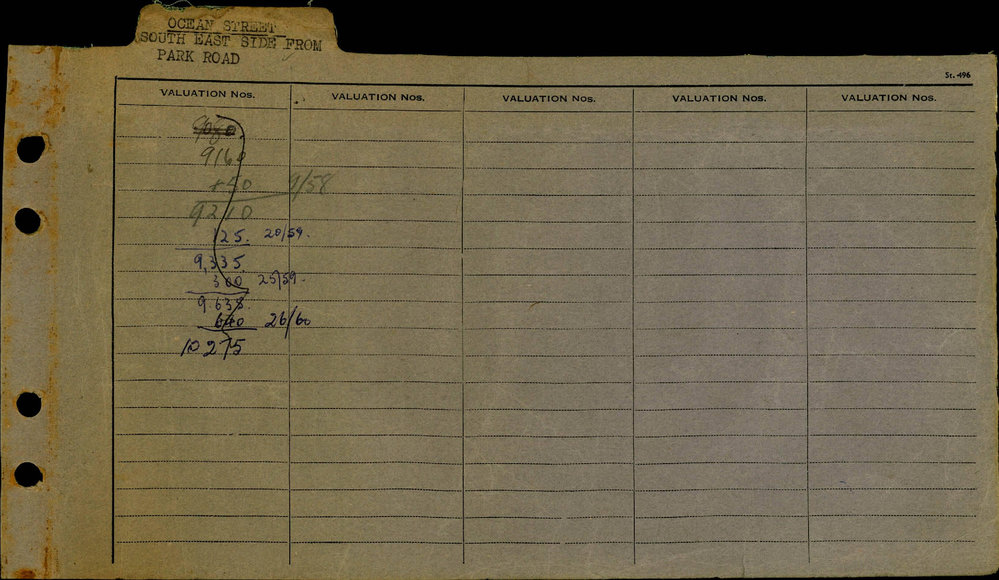 OCEAN STREET
SOUTH EAST SIDE FROM
PARK ROAD
St. 496
VALUATION Nos. VALUATION Nos. VALUATION Nos. VALUATION Nos. VALUATION Nos.
9080
9160
+50 9/58
9210
125. 20/59.
9,335
300 25/59.
9.635.
640 26/60
10275